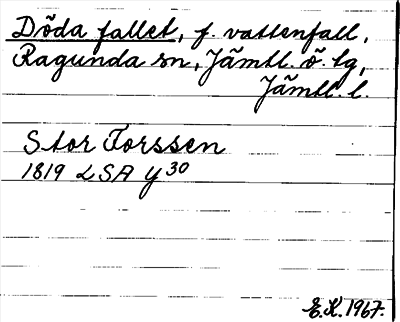 Döda fallet, f. vattenfall,
Ragunda sn, Jämtl. ö. tg,
Jämtl. l.
Stor Forssen
1819 LSA Y 30
E.K. 1967.